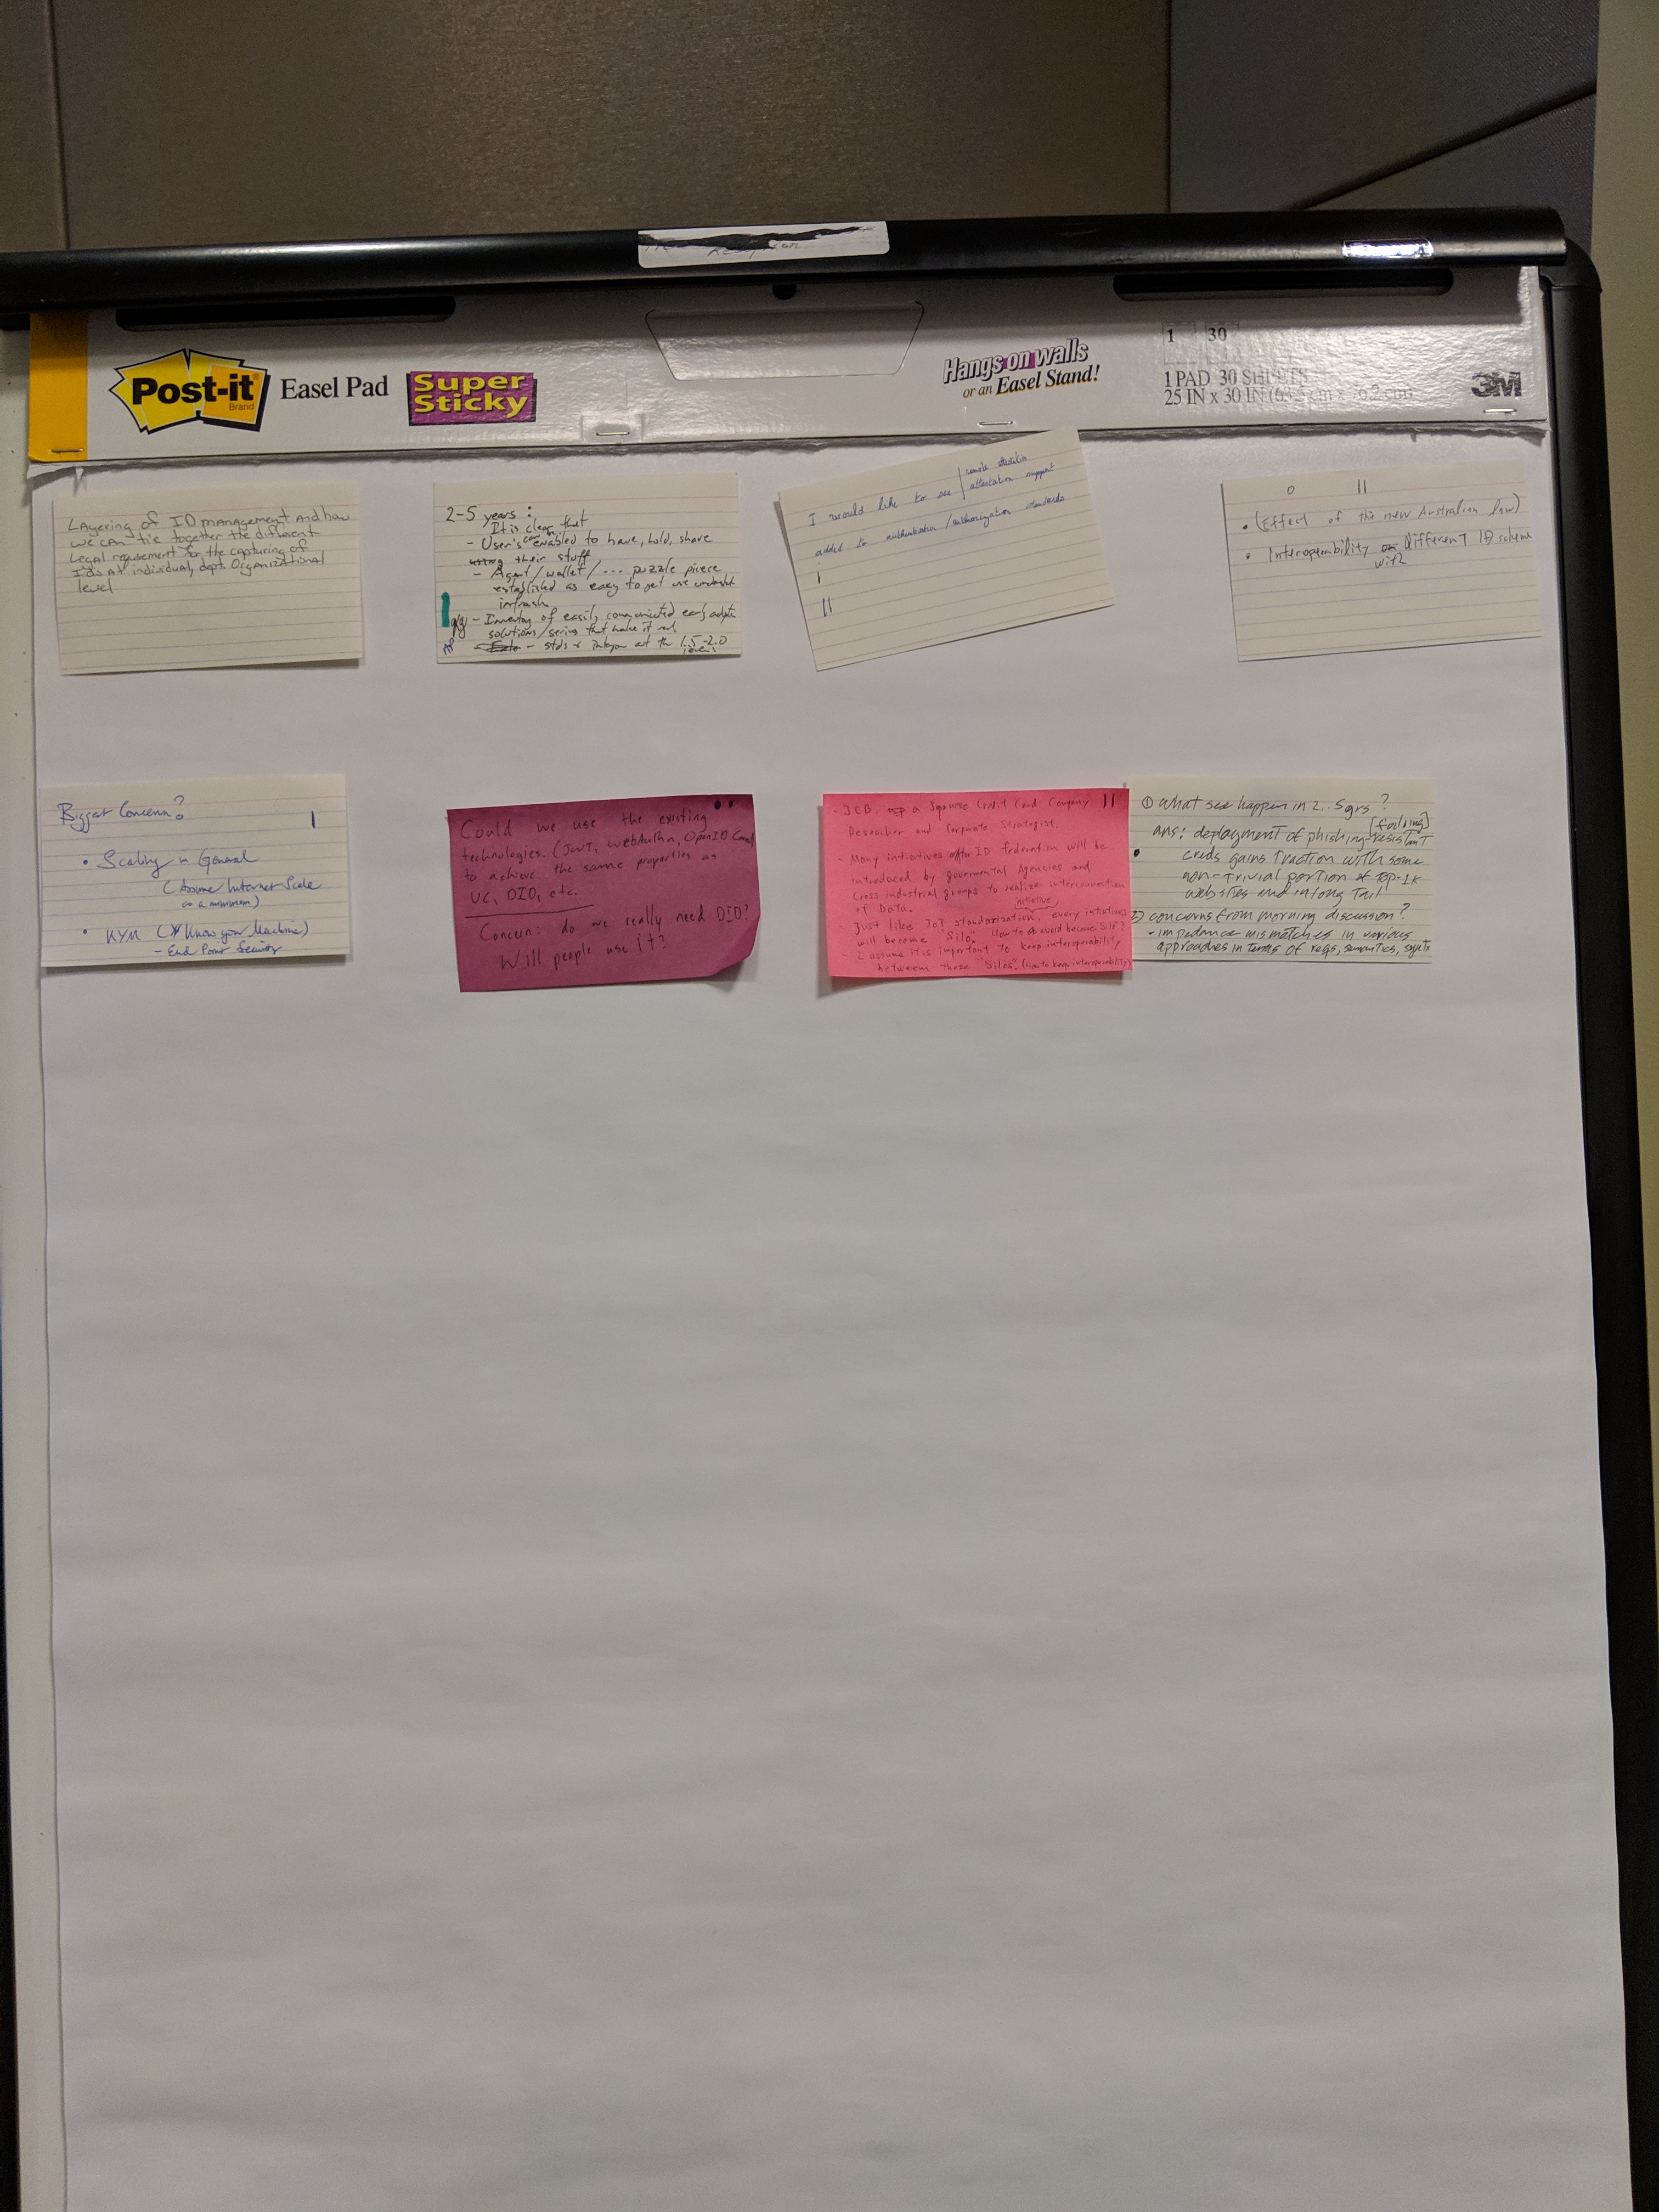 Post-it
Brand
Easel Pad
Super
Sticky
Hangs on walls
or an Easel Stand!
1 30
1 PAD 30 SHEETS
25 IN x 30 IN (63.5 cm x 76.2 cm)
3M
Layering of ID management and how
we can tie together the different
Legal requirement for the capturing of
IDs at individual, dept, Organizational
level
2-5 years :
It is clear that
- User's can be enabled to have, hold, share
using their stuff
- Agent/wallet/... puzzle piece
established as easy to get use
infrash
- Inventory of easily communicated early
solutions/series that make it real
- stds & interop at the 1.5-2.0
levels
I would like to see remote attestation
attestation support
added to authentication/authorization standards
I
II
0 II
• (Effect of the new Australian law)
• Interoperability on different ID scheme
with
Biggest Concern? I
• Scaling in General
(Assume Internet Scale
as a minimum)
• KYM (Know your Machine)
- End Point Security
Could we use the existing
technologies. (JWT, WebAuthn, OpenID
to achieve the same properties as
VC, DID, etc.
Concern: do we really need DID?
Will people use it?
- JCB, a Japanese Credit Card Company II
Researcher and Corporate Strategist.
- Many initiatives for ID federation will be
introduced by governmental Agencies and
cross industrial groups to realize interconnection
of Data.
initiative
- Just like IoT standarization, every intiatives
will become "Silo". How to avoid become Silo?
- I assume it is important to keep interoperability
between these "Silos". (How to keep interoperability)
① What see happen in 2..5yrs?
[failing]
ans: deployment of phishing-resistant
• creds gains traction with some
non-trivial portion of top-1K
websites and in long tail
② concerns from morning discussion?
• impedance mismatches in various
approaches in terms of regs, semantics, syntx